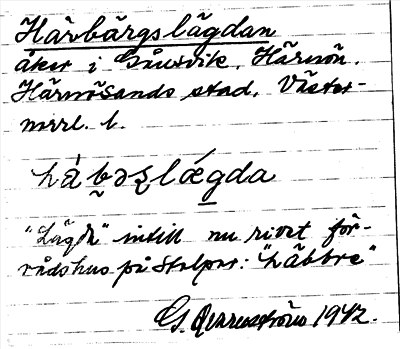 Härbärgslägdan
åker i Gånsvik, Härnön.
Härnösands stad. Väster-
norrl. l.
há̀b̰əʂlǽg̱da
"Lägda" intill nu rivet för-
rådshus på stolpar: "häbbre"
G. 1942.